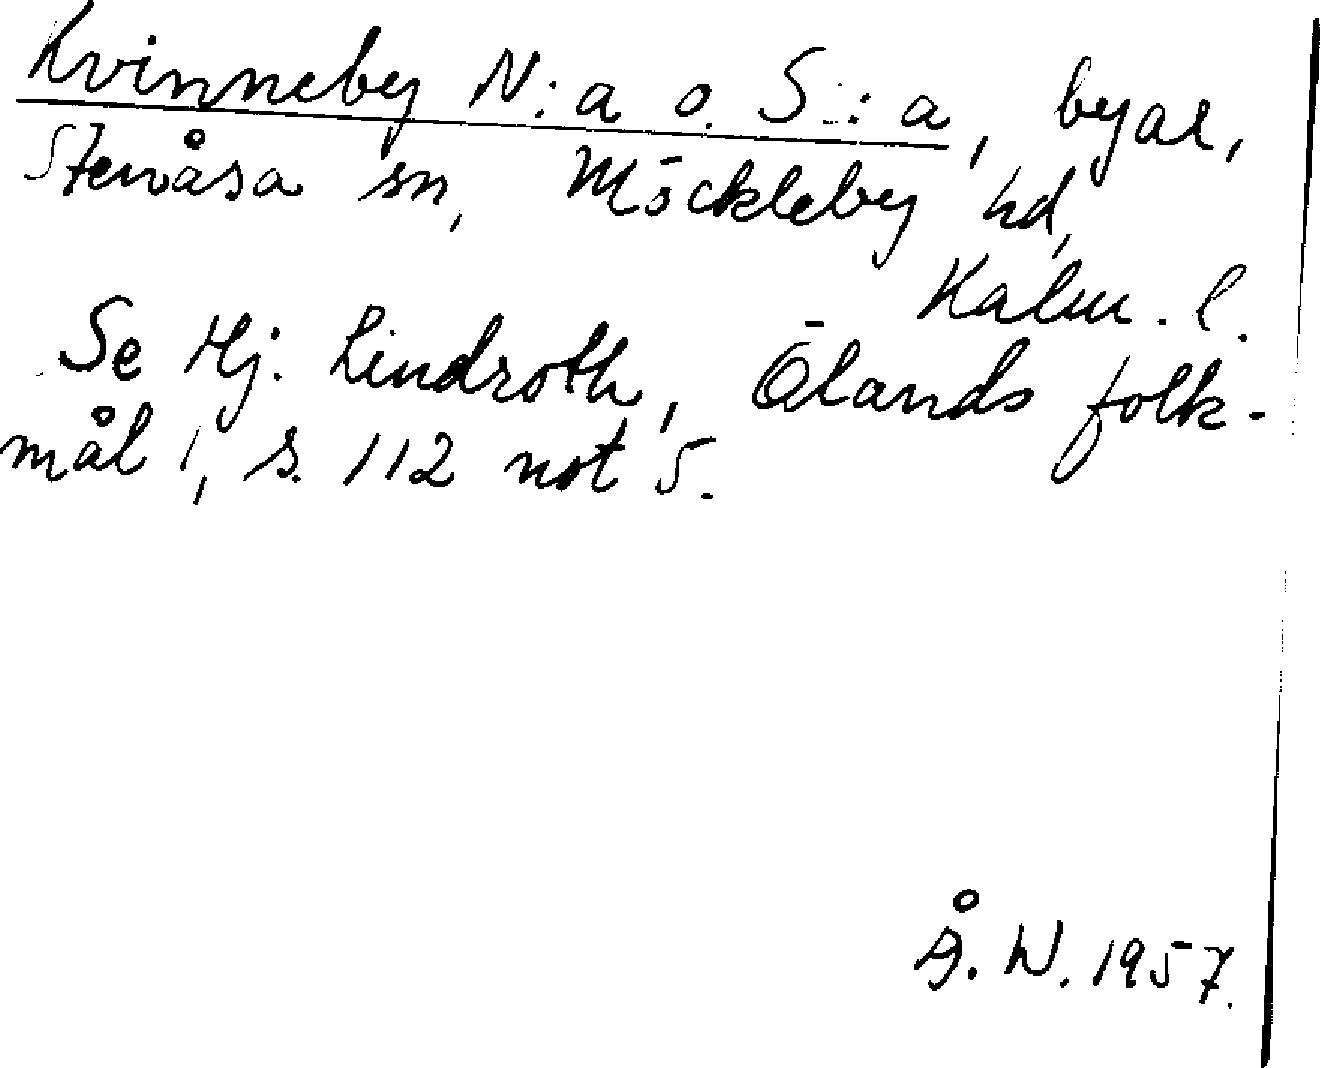 Kvinneby N:a o. S:a, byar,
Stenåsa sn, Möckleby hd,
Kalm. l.
Se Hj. Lindroth, Ölands folk-
mål 1, s. 112 not 5.
Å. W. 1957.